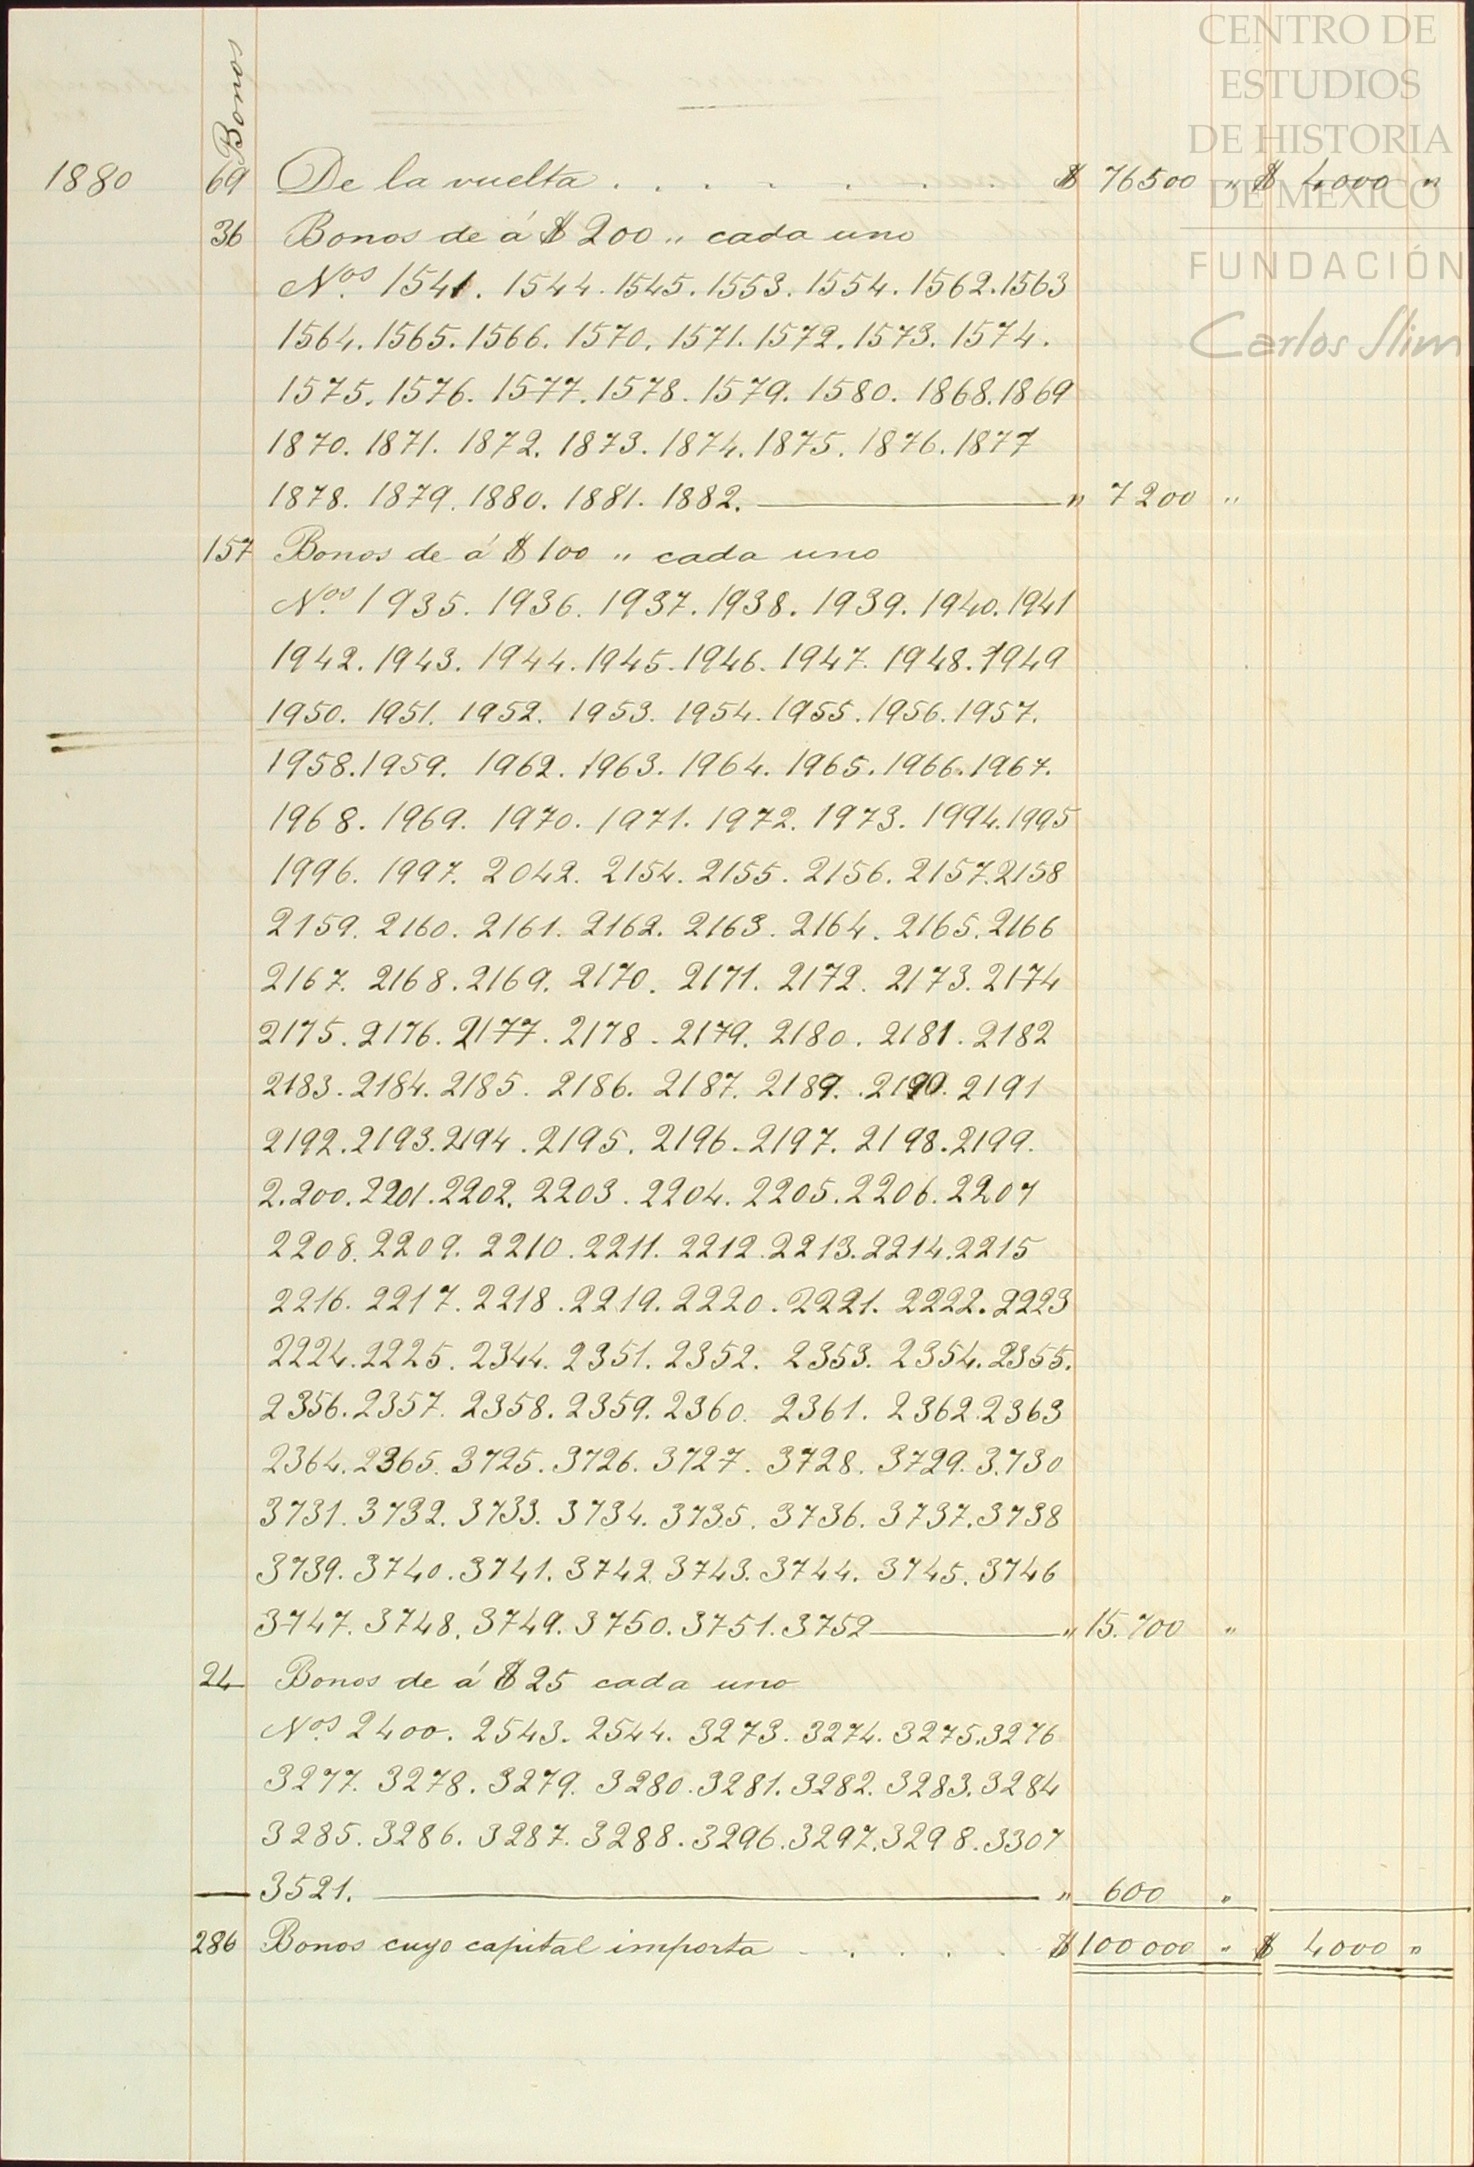 CENTRO DE
ESTUDIOS
DE HISTORIA
DE MÉXICO
FUNDACIÓN
Carlos Slim
Bonos
1880 69 De la vuelta . . . . . . . $ 76500 " $ 4000 "
36 Bonos de á $ 200 " cada uno
Nos. 1541. 1544. 1545. 1553. 1554. 1562. 1563
1564. 1565. 1566. 1570. 1571. 1572. 1573. 1574.
1575. 1576. 1577. 1578. 1579. 1580. 1868. 1869
1870. 1871. 1872. 1873. 1874. 1875. 1876. 1877
1878. 1879. 1880. 1881. 1882. " 7200 "
157 Bonos de á $ 100 " cada uno
Nos. 1935. 1936. 1937. 1938. 1939. 1940. 1941
1942. 1943. 1944. 1945. 1946. 1947. 1948. 1949
1950. 1951. 1952. 1953. 1954. 1955. 1956. 1957.
1958. 1959. 1962. 1963. 1964. 1965. 1966. 1967.
1968. 1969. 1970. 1971. 1972. 1973. 1994. 1995
1996. 1997. 2042. 2154. 2155. 2156. 2157. 2158
2159. 2160. 2161. 2162. 2163. 2164. 2165. 2166
2167. 2168. 2169. 2170. 2171. 2172. 2173. 2174
2175. 2176. 2177. 2178. 2179. 2180. 2181. 2182
2183. 2184. 2185. 2186. 2187. 2189. 2190. 2191
2192. 2193. 2194. 2195. 2196. 2197. 2198. 2199.
2.200. 2201. 2202. 2203. 2204. 2205. 2206. 2207
2208. 2209. 2210. 2211. 2212. 2213. 2214. 2215
2216. 2217. 2218. 2219. 2220. 2221. 2222. 2223
2224. 2225. 2344. 2351. 2352. 2353. 2354. 2355.
2356. 2357. 2358. 2359. 2360. 2361. 2362. 2363
2364. 2365. 3725. 3726. 3727. 3728. 3729. 3.730
3731. 3732. 3733. 3734. 3735. 3736. 3737. 3738
3739. 3740. 3741. 3742. 3743. 3744. 3745. 3746
3747. 3748. 3749. 3750. 3751. 3752 " 15.700 "
24 Bonos de á $ 25 cada uno
Nos. 2400. 2543. 2544. 3273. 3274. 3275. 3276
3277. 3278. 3279. 3280. 3281. 3282. 3283. 3284
3285. 3286. 3287. 3288. 3296. 3297. 3298. 3307
3521. " 600 "
286 Bonos cuyo capital importa . . . . . $ 100000 " $ 4000 "